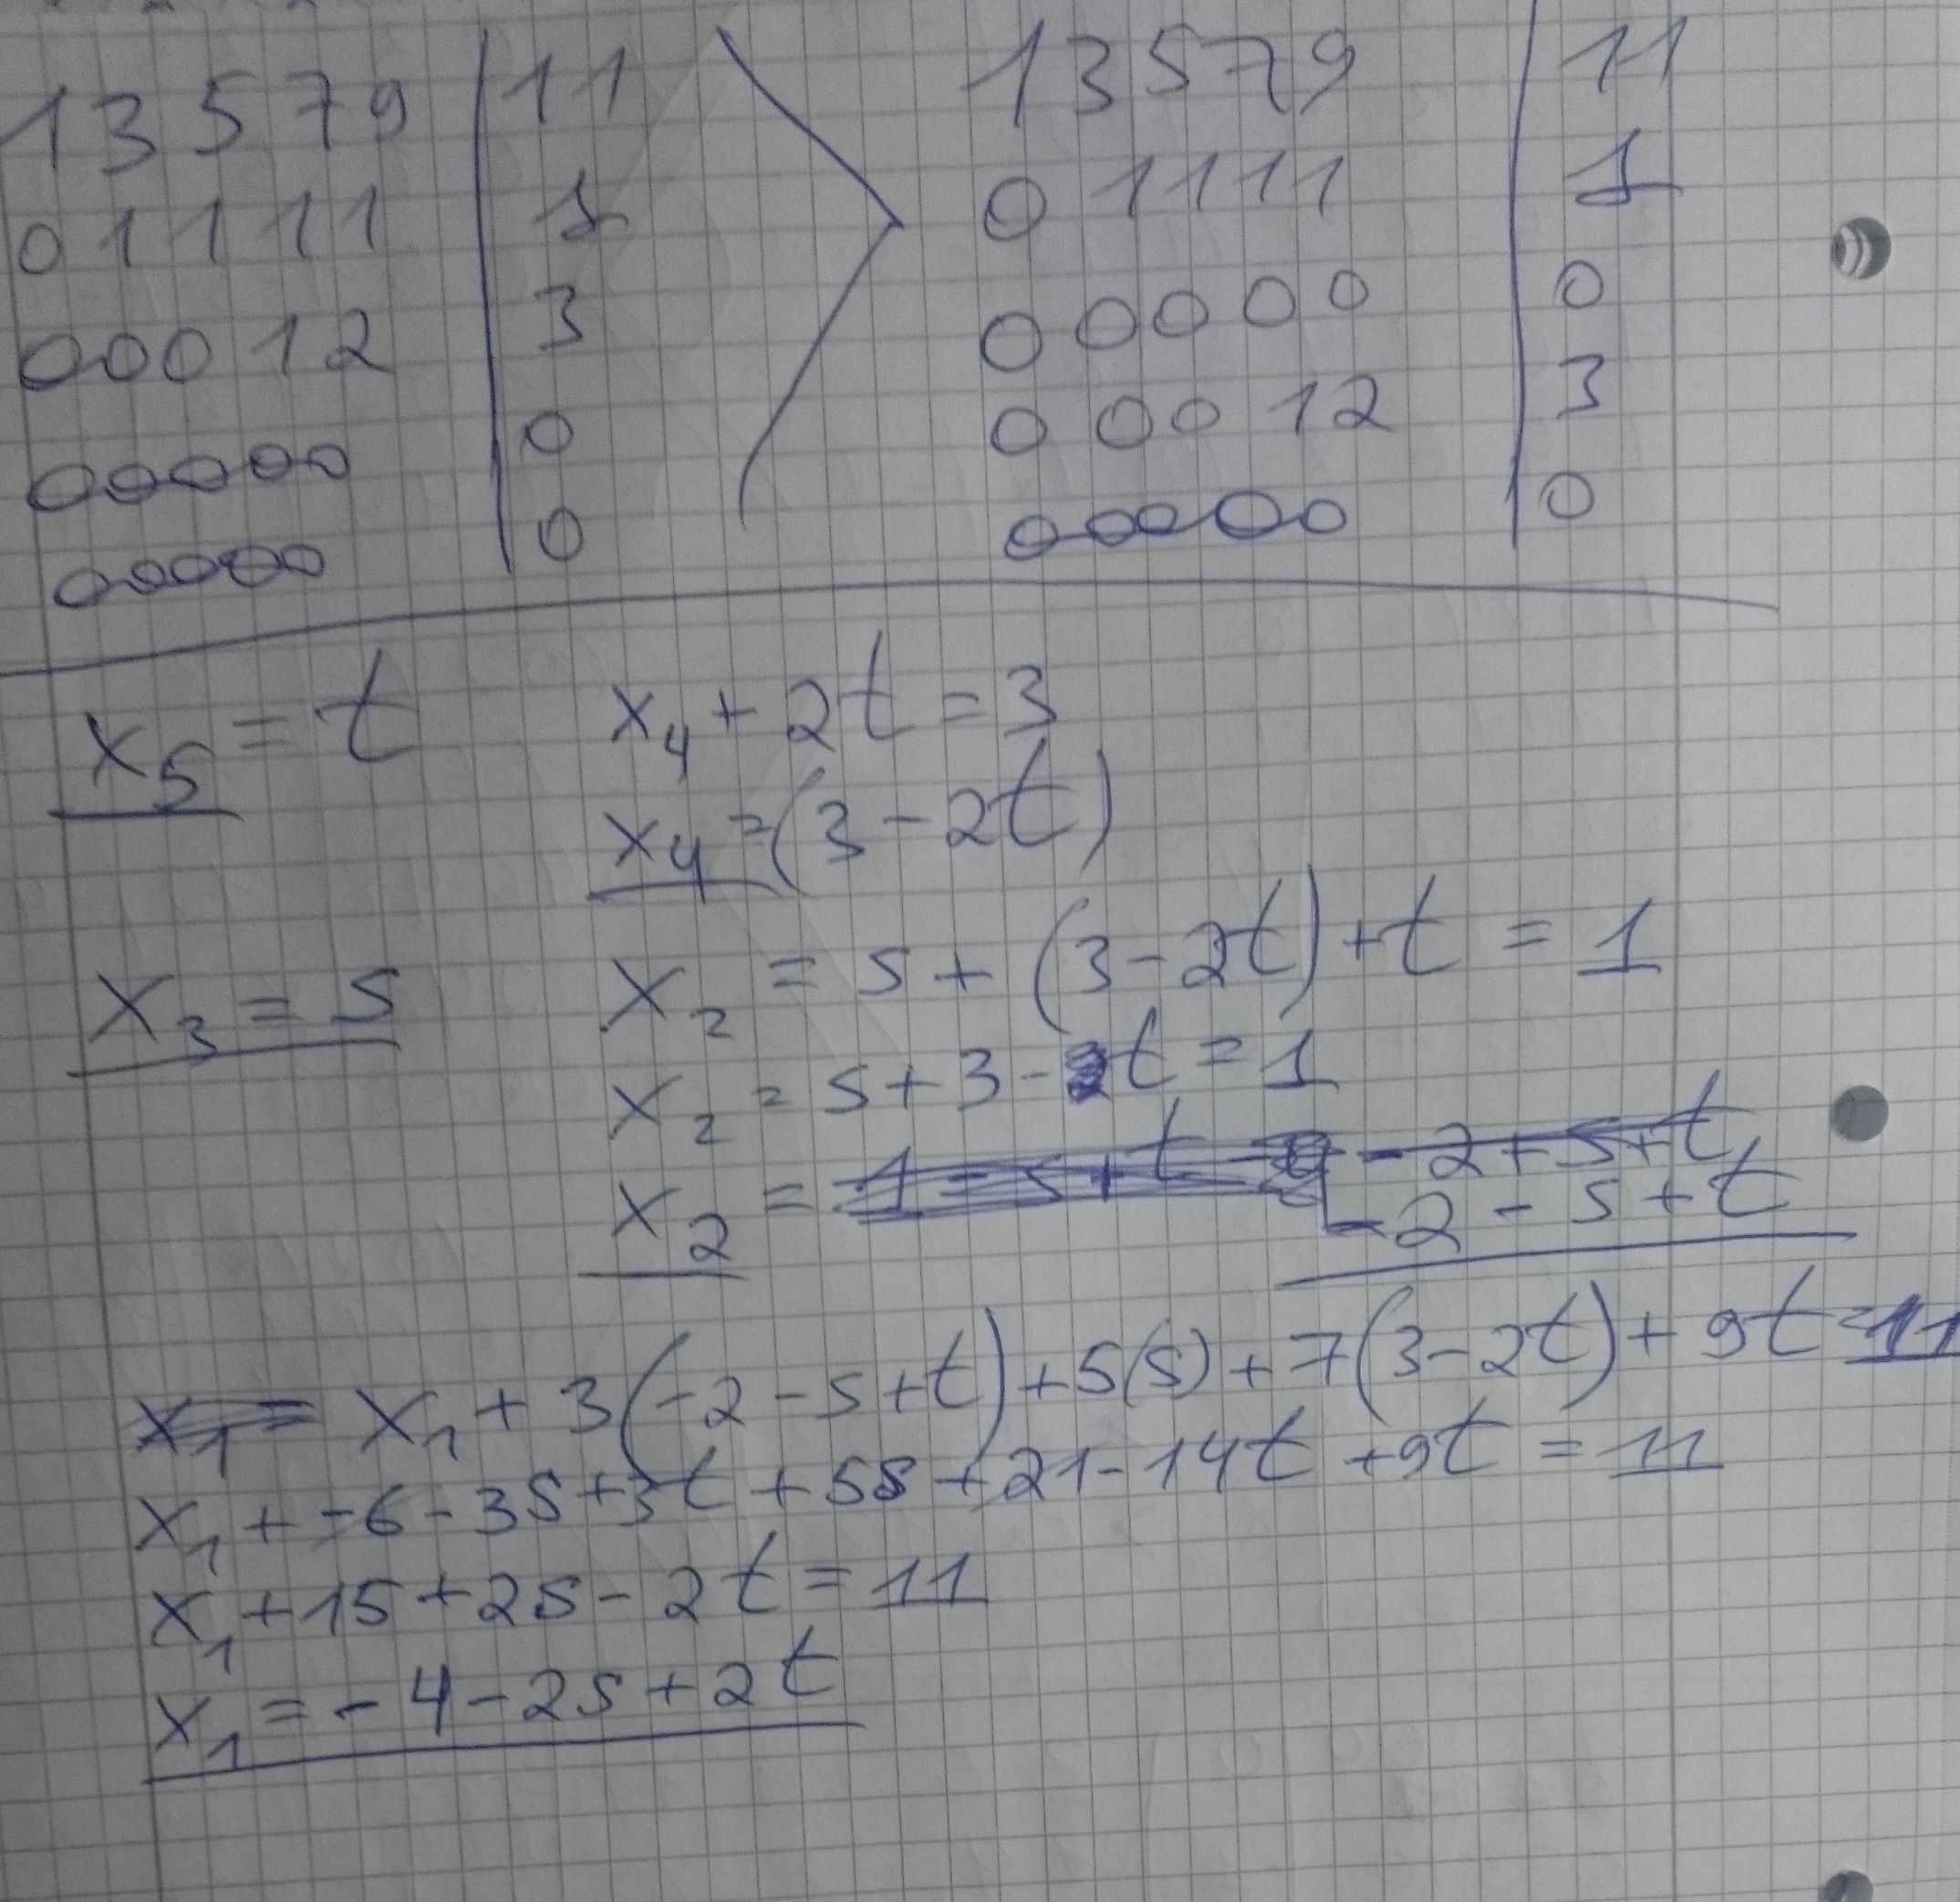 1 3 5 7 9 | 11
0 1 1 1 1 | 1
0 0 0 1 2 | 3
0 0 0 0 0 | 0
0 0 0 0 0 | 0
1 3 5 7 9 | 11
0 1 1 1 1 | 1
0 0 0 0 0 | 0
0 0 0 1 2 | 3
0 0 0 0 0 | 0
x₅ = t
x₄ + 2t = 3
x₄ = (3 - 2t)
x₃ = s
x₂ = s + (3 - 2t) + t = 1
x₂ = s + 3 - t = 1
x₂ = -2 + s + t
-2 - s + t
x₁ = x₁ + 3(-2 - s + t) + 5(s) + 7(3 - 2t) + 9t = 11
x₁ + -6 - 3s + 3t + 5s + 21 - 14t + 9t = 11
x₁ + 15 + 2s - 2t = 11
x₁ = -4 - 2s + 2t